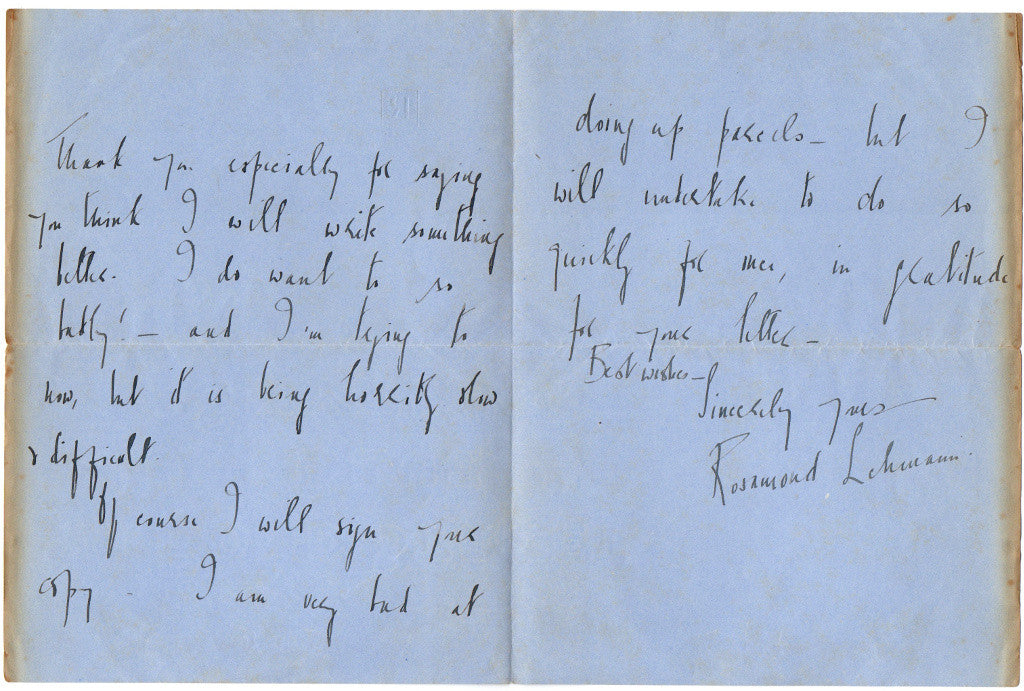 Thank you especially for saying
you think I will write something
better. I do want to so
badly! — and I'm trying to
now, but it is being horribly slow
& difficult.
Of course I will sign your
copy — I am very bad at
doing up parcels — but I
will undertake to do so
quickly for once, in gratitude
for your letter —
Best wishes —
Sincerely yours
Rosamond Lehmann.